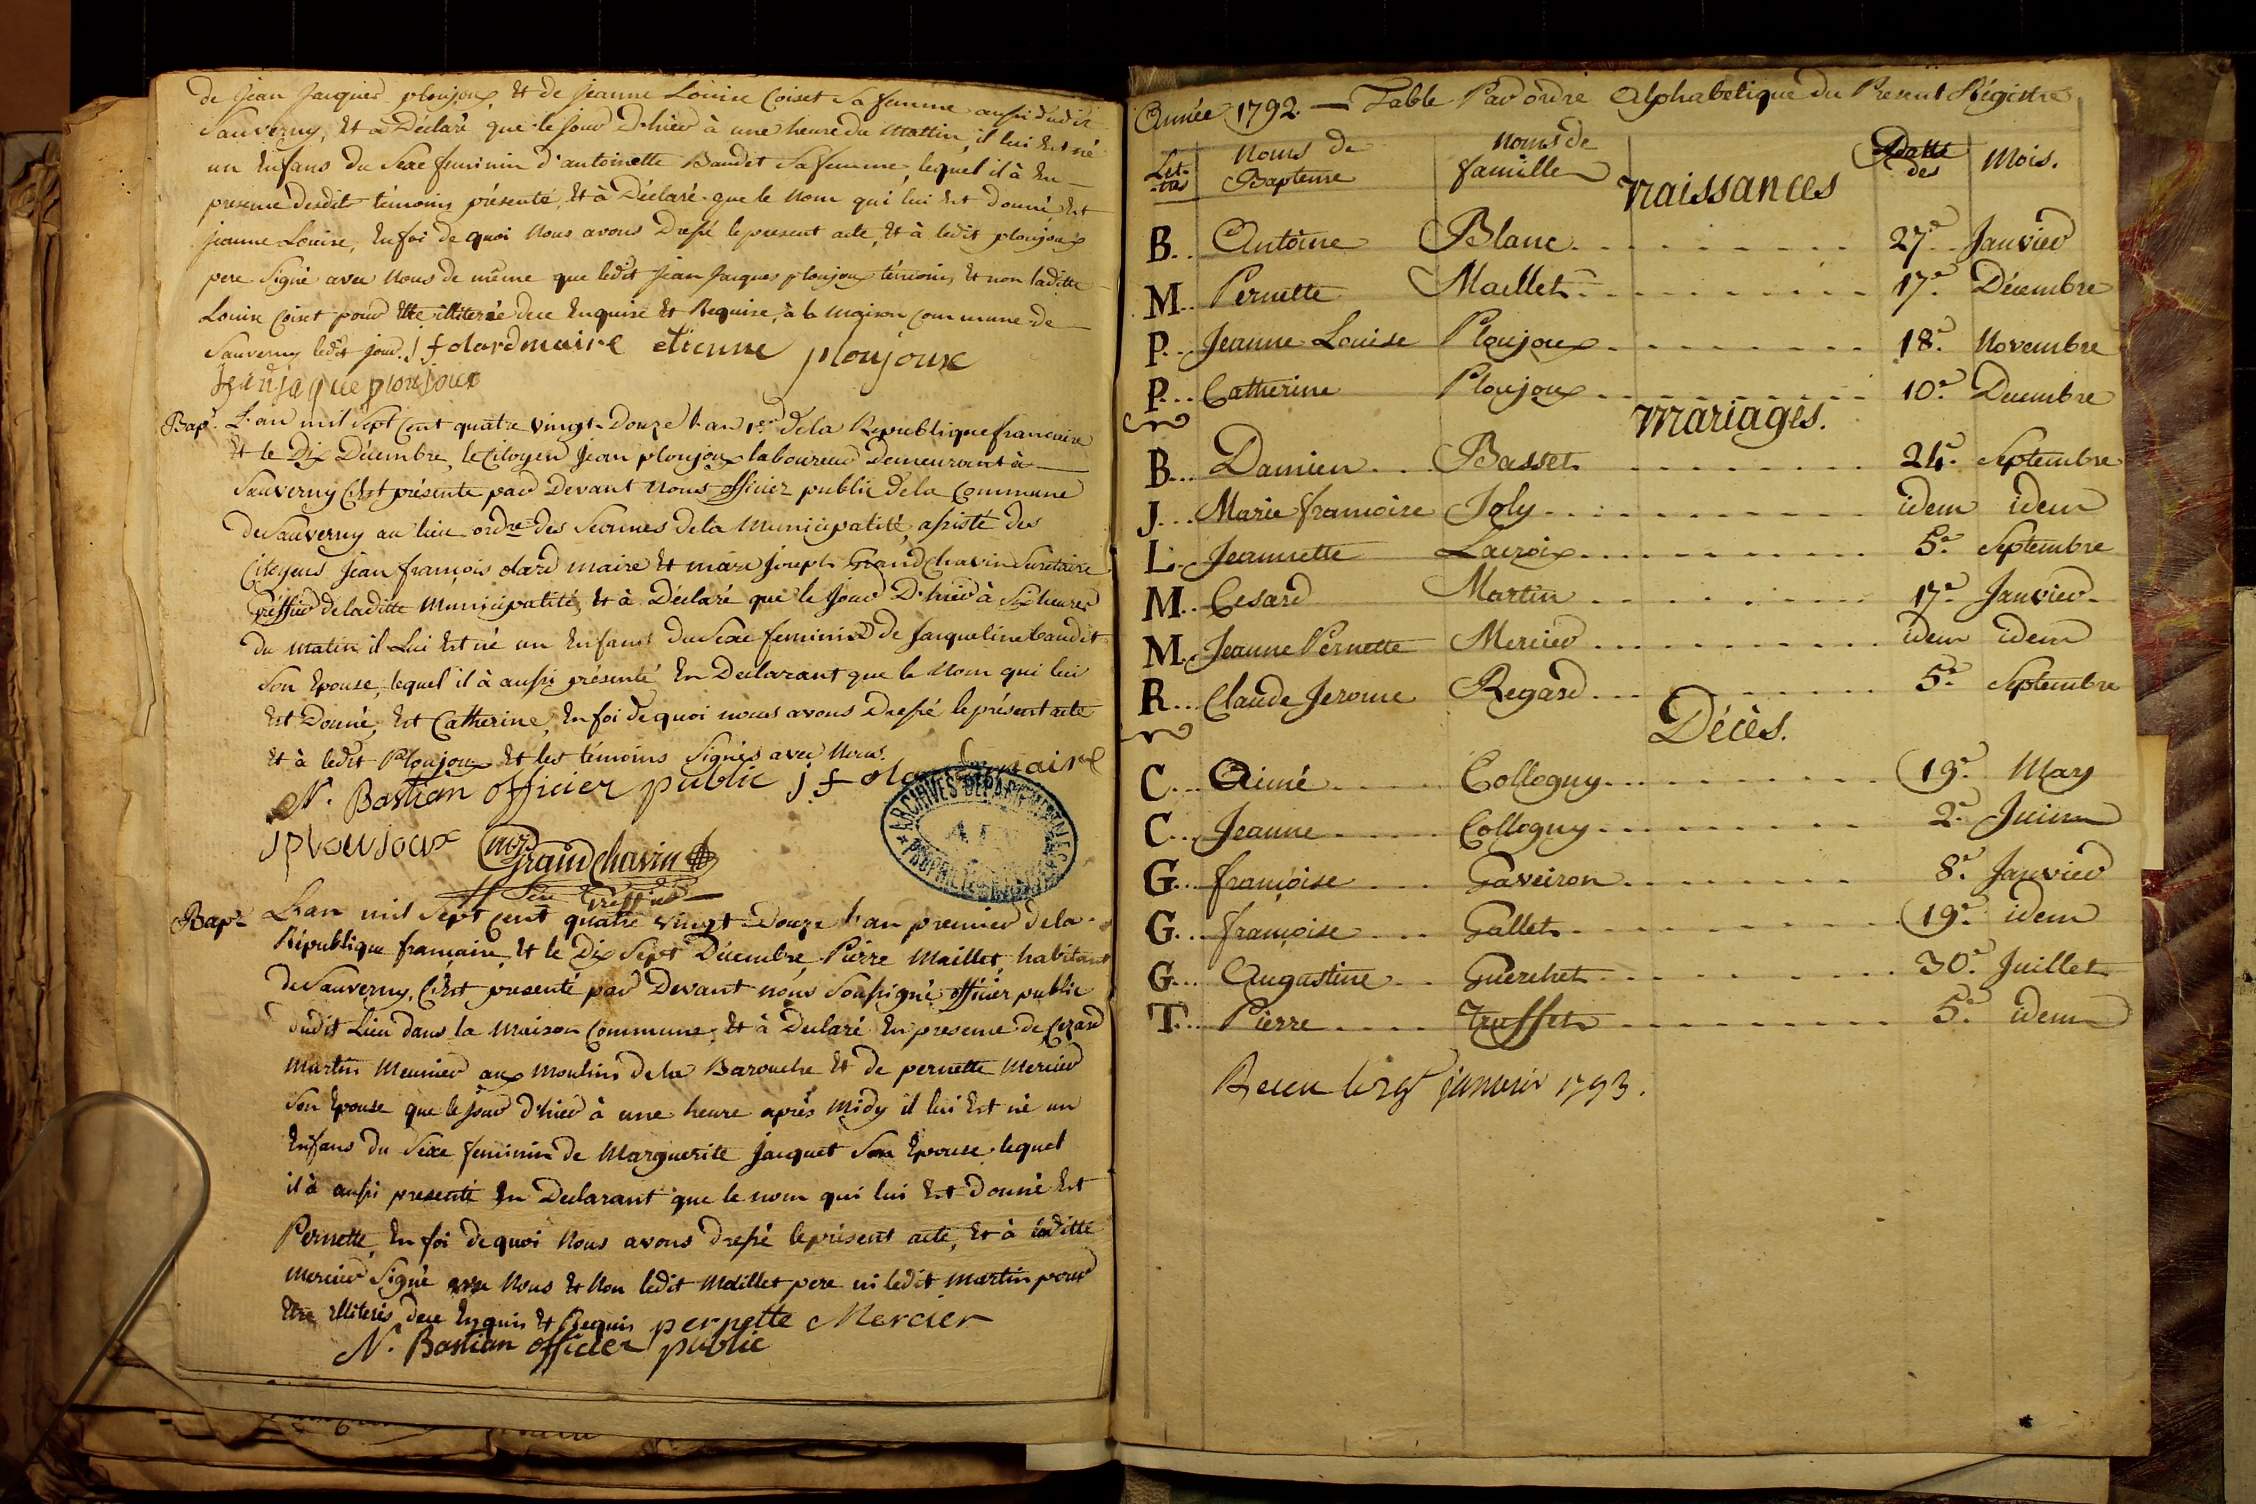 de Jean Jacques ploujoux, Et de Jeanne Louise Coiset Sa femme aussi dudit
Sauverny, Et à Déclaré que le jour D'hier à une heure du Mattin, il lui Est né
un Enfans du Sexe feminin d'antoinette Baudet Sa femme, lequel il à En
presence desdits témoins présenté, Et à Déclaré que le Nom qui lui Est donné, Est
jeanne Louise, En foi de quoi Nous avons Dressé le present acte, Et à ledit ploujoux
pere Signé avec Nous de même que ledit Jean Jacques ploujoux témoin, Et non laditte
Louise Coiset pour Etre illiterée de ce Enquise Et Requise, à la Maison Commune de
Sauverny ledit jour. j f olard maire etienne ploujoux
jean jaque ploujoux
Bap.e L'an mil Sept Cent quatre vingt Douze L'an 1.er de la Republique francaise
Et le Dix Décembre, le Citoyen Jean ploujoux laboureur Demeurant à
Sauverny C'est présenté par Devant Nous officier public de la Commune
de Sauverny au lieu ord.re des Seances de la Municipalité, assisté des
Citoyens Jean françois olard maire Et marc Joseph Grandchavin Secretaire
Greffier de laditte Municipalité, Et à Déclaré que le Jour D'hier à Six heures
du Matin il Lui Est né un Enfans du Sexe feminin de Jacqueline baudet
Son Epouse, lequel il à aussi présenté En Declarant que le Nom qui lui
Est Donné, Est Catherine, En foi de quoi nous avons Dressé le présent acte
Et à ledit Ploujoux Et les témoins Signés avec Nous.
N. Bastian officier public j f olard maire
J ploujoux mJ. Grandchavin
Sec. Greffier
Bap.e L'an mil Sept Cent quatre vingt Douze L'an premier de la
République francaise, Et le Dix Sept Décembre Pierre Maillet habitant
de Sauverny, C'Est presenté par Devant nous Soussigné officier public
dudit Lieu dans la Maison Commune, Et à Declaré En presence de Cezard
Martin Meunier aux Moulins de la Barouche Et de pernette Mercier
Son Epouse que le Jour d'hier à une heure aprés Midy il lui Est né un
Enfans du Sexe feminin de Marguerite Jacquet Son Epouse lequel
il à aussi presenté En Declarant que le nom qui lui Est Donné Est
Pernette, En foi de quoi Nous avons dressé le présent acte, Et à laditte
Mercier Signé avec Nous Et Non ledit Maillet pere ni ledit Martin pour
Etre illiterés de ce Enquis Et Requis pernette Mercier
N. Bastian officier public
ARCHIVES DEPARTEMENTALES
AIN
PROPRIETE PUBLIQUE
Année 1792. — Table Par ordre Alphabetique du Present Régistre
Let-tres Noms de Bapteme Noms de famille Dattes des Mois.
Naissances
B. Antoine Blanc 27.e Janvier
M. Pernette Maillet 17.e Décembre
P. Jeanne Louise Ploujoux 18.e Novembre
P. Catherine Ploujoux 10.e Decembre
Mariages.
B. Damien Basset 24.e Septembre
J. Marie francoise Joly idem idem
L. Jeannette Lacroix 5.e Septembre
M. Cesard Martin 17.e Janvier
M. Jeanne Pernette Mercier idem idem
R. Claude Jerome Regard 5.e Septembre
Décès.
C. Aimé Collogny 19.e Mars
C. Jeanne Collogny 2.e Juin
G. françoise Gaveiron 8.e Janvier
G. françoise Gallet 19.e idem
G. Augustine Guerchet 30.e Juillet
T. Pierre Truffet 5.e idem
Recu le 29 janvier 1793.